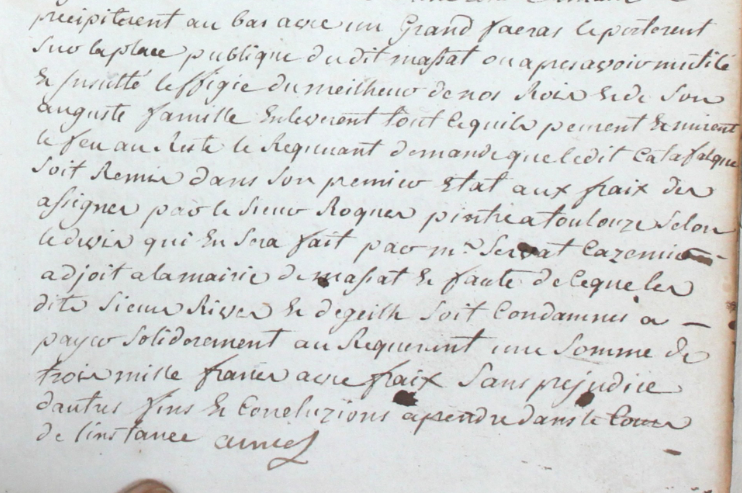 précipiterent au bas avec un Grand facras le porterent
Sur la place publique dudit massat ou apres avoir mutilé
& Insulté leffigie du meilheur de nos Rois & de Son
auguste famille Enleverent tout ce quils peurent & mirent
le feu au Reste le Requerant demande que ledit Catafalque
Soit Remis dans Son premier Etat aux fraix des
assignes par le Sieur Roques pintre a toulouze Selon
le devis qui En Sera fait par mr. Servat Cazemir
adjoit a la mairie de massat & faute de ce que les
dits Sieurs Rives & degeilh Soit Condamnés a
payer Soliderement au Requerent une Somme de
trois mille francs avec fraix Sans prejudice
dautres fins & Concluzions aprendre dans le Cours
de linstance